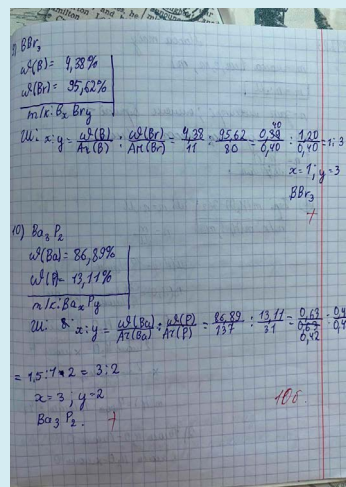 9) BBr₃
ω(B) = 4,38%
ω(Br) = 95,62%
m/k: BxBry
x:y = ω(B)/Ar(B) : ω(Br)/Ar(Br) = 4,38/11 : 95,62/80 = 0,39/0,40 : 1,20/0,40 = 1:3
x = 1; y = 3
BBr₃
+
10) Ba₃P₂
ω(Ba) = 86,89%
ω(P) = 13,11%
m/k: BaxPy
x:y = ω(Ba)/Ar(Ba) : ω(P)/Ar(P) = 86,89/137 : 13,11/31 = 0,63/0,42 :
= 1,5:1·2 = 3:2
x = 3; y = 2
Ba₃P₂. +
10б.